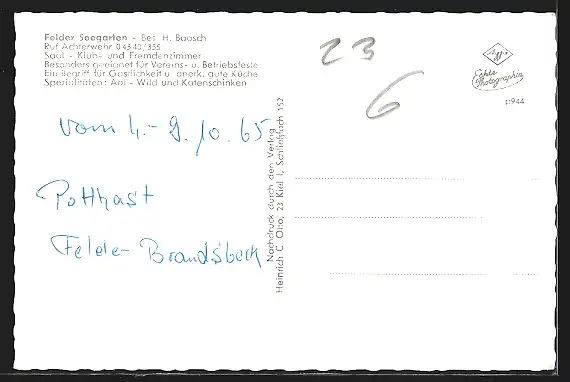 Felder Seegarten - Bes. H. Baasch
Ruf Achterwehr 04340/355
Saal - Klub- und Fremdenzimmer
Besonders geeignet für Vereins- u. Betriebsfeste
Ein Begriff für Gastlichkeit u. anerk. gute Küche
Spezialitäten: Aal - Wild und Katenschinken
23
6
Agfa
Echte
Photographie
11944
vom 4.- 9.10.65
Potthast
Felde- Brandsbeck
Nachdruck durch den Verlag
Heinrich C. Otto, 23 Kiel 1, Schließfach 152